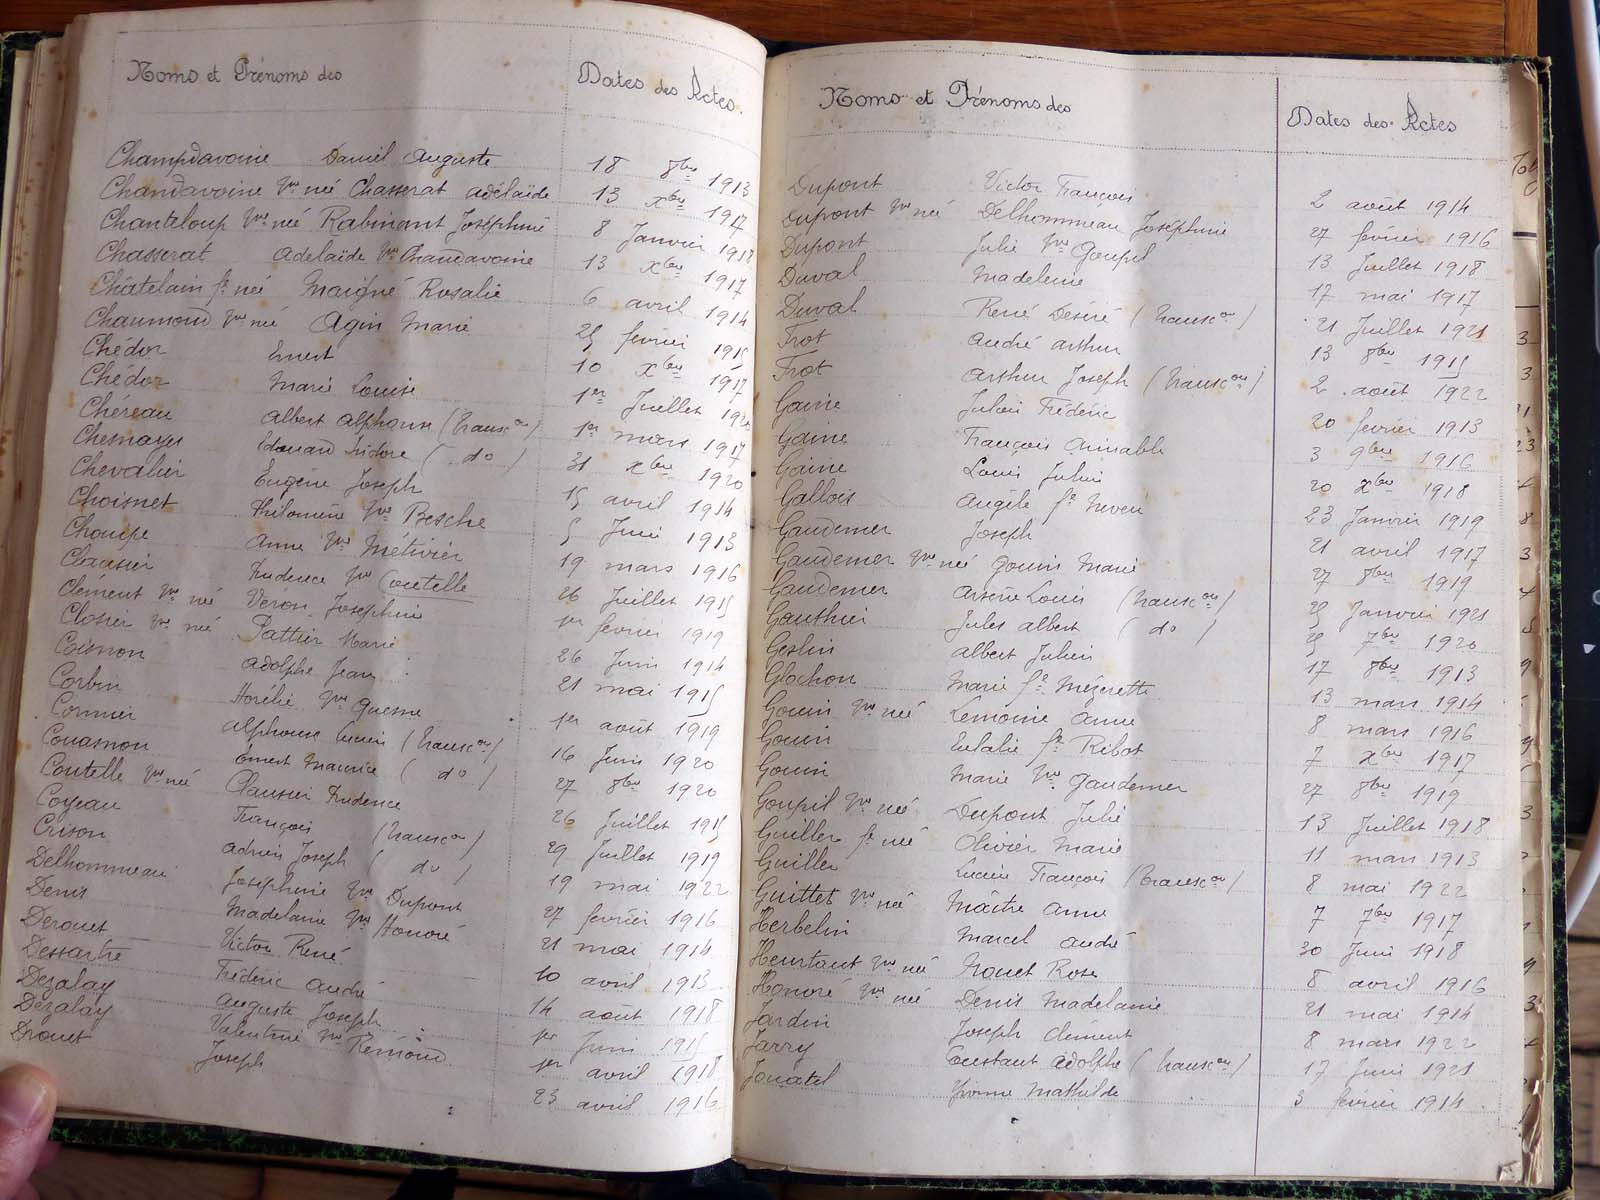 Noms et Prénoms des Dates des Actes.
Champdavoine Daniel Auguste 18 8bre 1913
Chandavoine Vve née Chasserat Adélaïde 13 xbre 1917
Chanteloup Vve née Rabinant Joséphine 8 Janvier 1917
Chasserat Adélaïde Vve Chandavoine 13 xbre 1917
Châtelain fe née Maigné Rosalie 6 avril 1914
Chaumond Vve née Agin Marie 25 février 1915
Chédor Ernest 10 xbre 1917
Chédor Marie Louise 1er Juillet 1920
Chéreau Albert Alphonse (transcon) 1er mars 1917
Chesnaye Edouard Isidore ( do ) 31 xbre 1920
Chevalier Eugène Joseph 15 avril 1914
Choisnet Philomène Vve Besche 5 Juin 1913
Choupe Anne Vve Métivier 19 mars 1916
Clausier Prudence Vve Coutelle 26 Juillet 1915
Clément Vve née Véron Joséphine 1er février 1919
Closier Vve née Pattier Marie 26 Juin 1914
Coisnon Adolphe Jean 21 mai 1915
Corbin Honélie Vve Guesne 1er août 1919
Cormier Alphonse Lucien (transcon) 16 Juin 1920
Couasnon Ernest Maurice ( do ) 27 8bre 1920
Coutelle Vve née Clausier Prudence 26 Juillet 1915
Coyeau François (transcon) 29 Juillet 1919
Crison Adrien Joseph ( do ) 19 mai 1922
Delhommeau Joséphine Vve Dupont 27 février 1916
Denis Madelaine Vve Honoré 21 mai 1914
Derouet Victor René 10 avril 1913
Dessartre Frédéric André 14 août 1918
Dezalay Auguste Joseph 1er Juin 1915
Dezalay Valentine Vve Rémond 1er avril 1918
Drouet Joseph 23 avril 1916
Noms et Prénoms des Dates des Actes
Dupont Victor François 2 août 1914
Dupont Vve née Delhommeau Joséphine 27 février 1916
Dupont Julie Vve Goupil 13 Juillet 1918
Duval Madeleine 17 mai 1917
Duval René Désiré (transcon) 21 Juillet 1921
Frot André Arthur 13 8bre 1915
Frot Arthur Joseph (transcon) 2 août 1922
Gaine Julien Frédéric 20 février 1913
Gaine François Aimable 3 9bre 1916
Gaine Louis Julien 20 xbre 1918
Gallois Angèle fe Neveu 23 Janvier 1919
Gaudemer Joseph 21 avril 1917
Gaudemer Vve née Gouin Marie 27 8bre 1919
Gaudemer Arsène Louis (transcon) 25 Janvier 1921
Gauthier Jules Albert ( do ) 25 7bre 1920
Geslin Albert Julien 17 8bre 1913
Glochon Marie fe Mézerette 13 mars 1914
Gouin Vve née Lemoine Anne 8 mars 1916
Gouin Eulalie fe Ribot 7 xbre 1917
Gouin Marie Vve Gaudemer 27 8bre 1919
Goupil Vve née Dupont Julie 13 Juillet 1918
Guiller fe née Olivier Marie 11 mars 1913
Guiller Lucien François (transcon) 8 mai 1922
Guittet Vve née Maître Anne 7 7bre 1917
Herbelin Marcel André 30 Juin 1918
Heurtaut Vve née Nouet Rose 8 avril 1916
Honoré Vve née Denis Madelanie 21 mai 1914
Jardin Joseph Clément 8 mars 1922
Jarry Constant Adolphe (transcon) 17 Juin 1921
Jouatel Yvonne Mathilde 3 février 1914